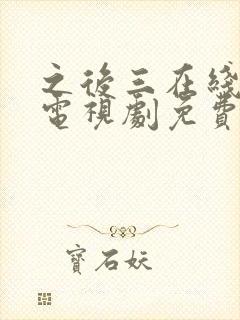 之後三在綫
電視劇免費
寶石妖